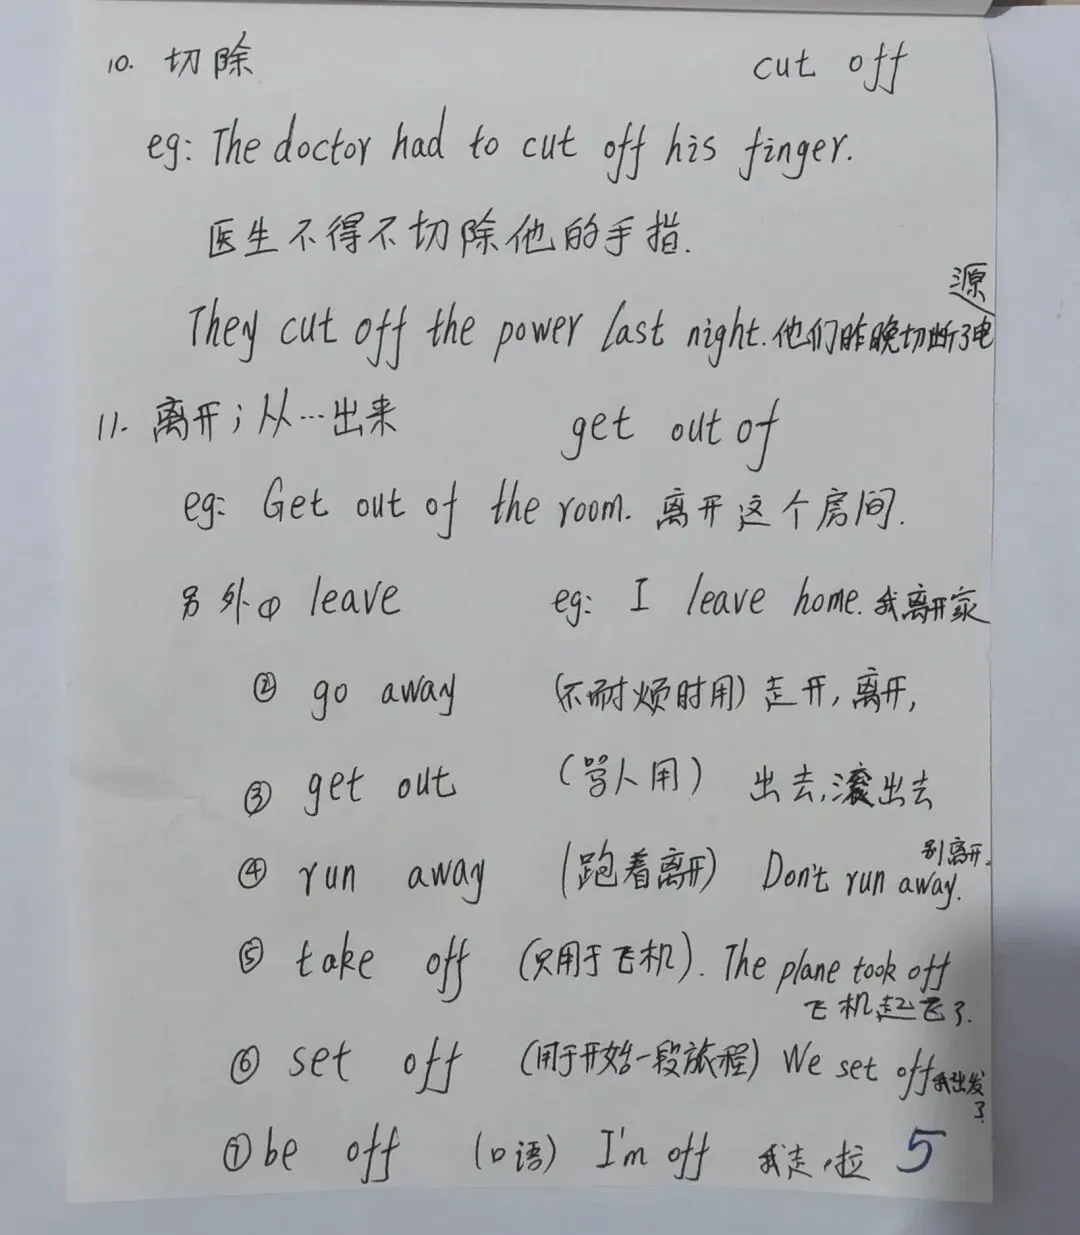 10. 切除 cut off
eg: The doctor had to cut off his finger.
医生不得不切除他的手指.
They cut off the power last night. 他们昨晚切断了电源
11. 离开; 从…出来 get out of
eg: Get out of the room. 离开这个房间.
另外① leave eg: I leave home. 我离开家
② go away (不耐烦时用) 走开, 离开,
③ get out (骂人用) 出去, 滚出去
④ run away (跑着离开) Don't run away. 别离开.
⑤ take off (只用于飞机). The plane took off
飞机起飞了.
⑥ set off (用于开始一段旅程) We set off 我出发了
⑦ be off (口语) I'm off 我走啦 5